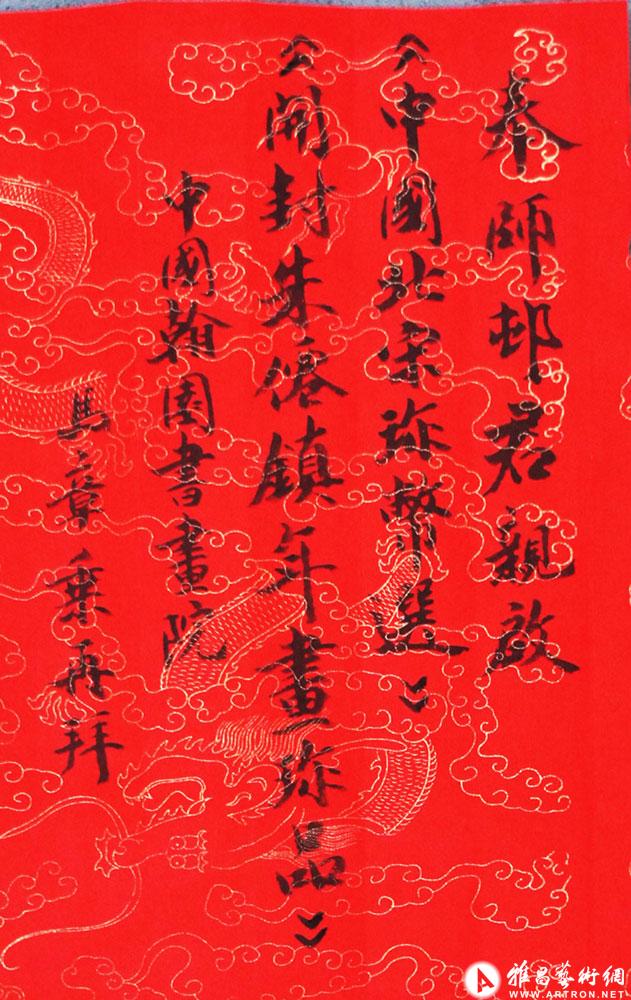 奉師邨君親啟
《中國北宋珎幣選》
《開封朱僊鎮年畫珎品》
中國翰園書畫院
馬章乗再拜
雅昌藝術網
WWW.ARTRON.NET